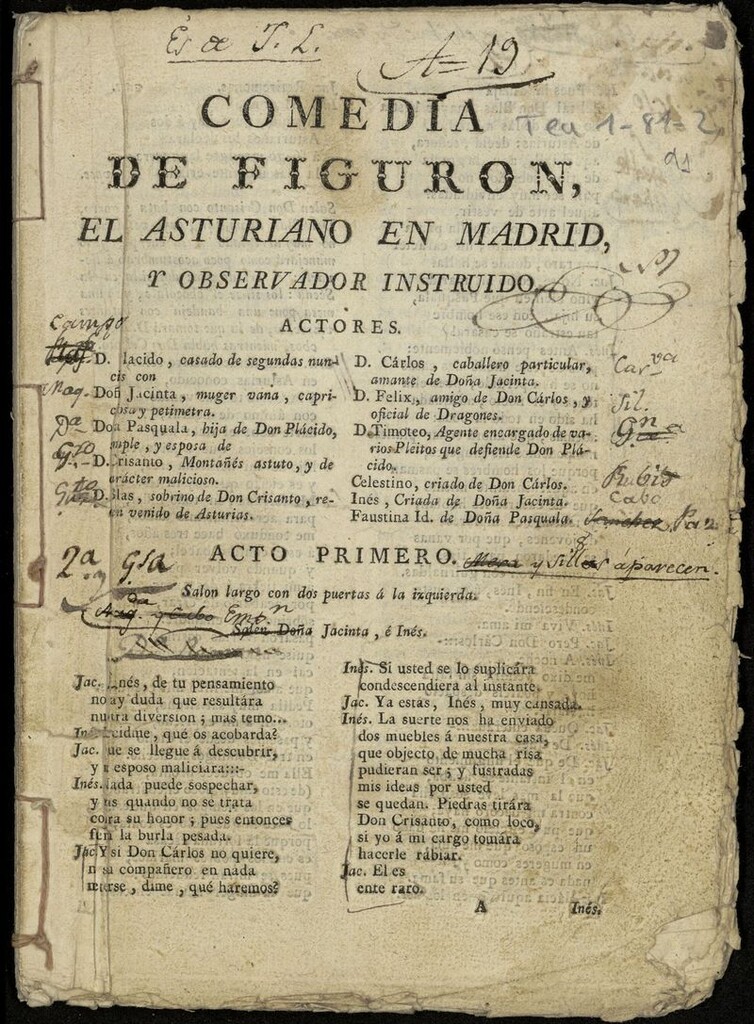 Es de T. L.
A = 19
COMEDIA
Tea 1-81-2,
a1
DE FIGURON,
EL ASTURIANO EN MADRID,
Y OBSERVADOR INSTRUIDO.
ACTORES.
Campo
D. lacido, casado de segundas nun-
cis con
Maq. Doñ Jacinta, muger vana, capri-
chosa y petimetra.
Doa Pasquala, hija de Don Plácido,
mple, y esposa de
D. Crisanto, Montañés astuto, y de
carácter malicioso.
D. Blas, sobrino de Don Crisanto, re-
en venido de Asturias.
D. Cárlos, caballero particular,
amante de Doña Jacinta.
D. Felix, amigo de Don Cárlos, y
oficial de Dragones.
D. Timoteo, Agente encargado de va-
rios Pleitos que defiende Don Plá-
cido.
Celestino, criado de Don Cárlos.
Inés, Criada de Doña Jacinta.
Faustina Id. de Doña Pasquala.
Carva
Sil.
Gna
Rubio
Cabo
2a
Gsa
ACTO PRIMERO.
Mesa y sillas aparecen.
Salon largo con dos puertas á la izquierda.
Salen Doña Jacinta, é Inés.
Jac. Inés, de tu pensamiento
no ay duda que resultára
nuetra diversion; mas temo...
In. Decidme, qué os acobarda?
Jac. ue se llegue á descubrir,
y i esposo maliciara:::-
Inés. Nada puede sospechar,
y us quando no se trata
cotra su honor; pues entonces
fuera la burla pesada.
Jac. Y si Don Cárlos no quiere,
n su compañero en nada
meterse, dime, qué haremos?
Inés. Si usted se lo suplicára
condescendiera al instante.
Jac. Ya estas, Inés, muy cansada.
Inés. La suerte nos ha enviado
dos muebles á nuestra casa,
que objecto de mucha risa
pudieran ser; y fustradas
mis ideas por usted
se quedan. Piedras tirára
Don Crisanto, como loco,
si yo á mi cargo tomára
hacerle rábiar.
Jac. El es
ente raro.
A
Inés.